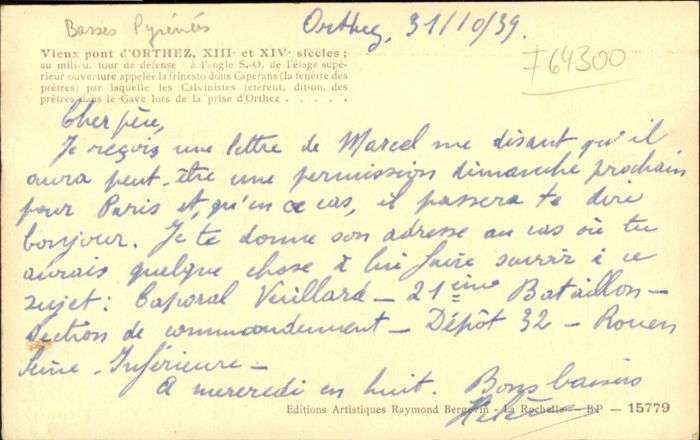 Basses Pyrénées
Orthez, 31/10/39.
764300
Vieux pont d'ORTHEZ, XIIIᵉ et XIVᵉ siècles ;
au milieu, tour de défense à l'angle S.-O. de l'étage supé-
rieur ouverture appelée la frinesto dous Caperans (la fenêtre des
prêtres) par laquelle les Calvinistes jetèrent, dit-on, des
prêtres dans le Gave lors de la prise d'Orthez . . . . .
Cher père,
Je reçois une lettre de Marcel me disant qu'il
aura peut-être une permission dimanche prochain
pour Paris et, qu'en ce cas, il passera te dire
bonjour. Je te donne son adresse au cas où tu
aurais quelque chose à lui faire savoir à ce
sujet : Caporal Vuillard - 21ème Bataillon -
Section de commandement - Dépôt 32 - Rouen
Seine-Inférieure -
A mercredi en huit. Bons baisers
Editions Artistiques Raymond Bergevin - La Rochelle - BP - 15779